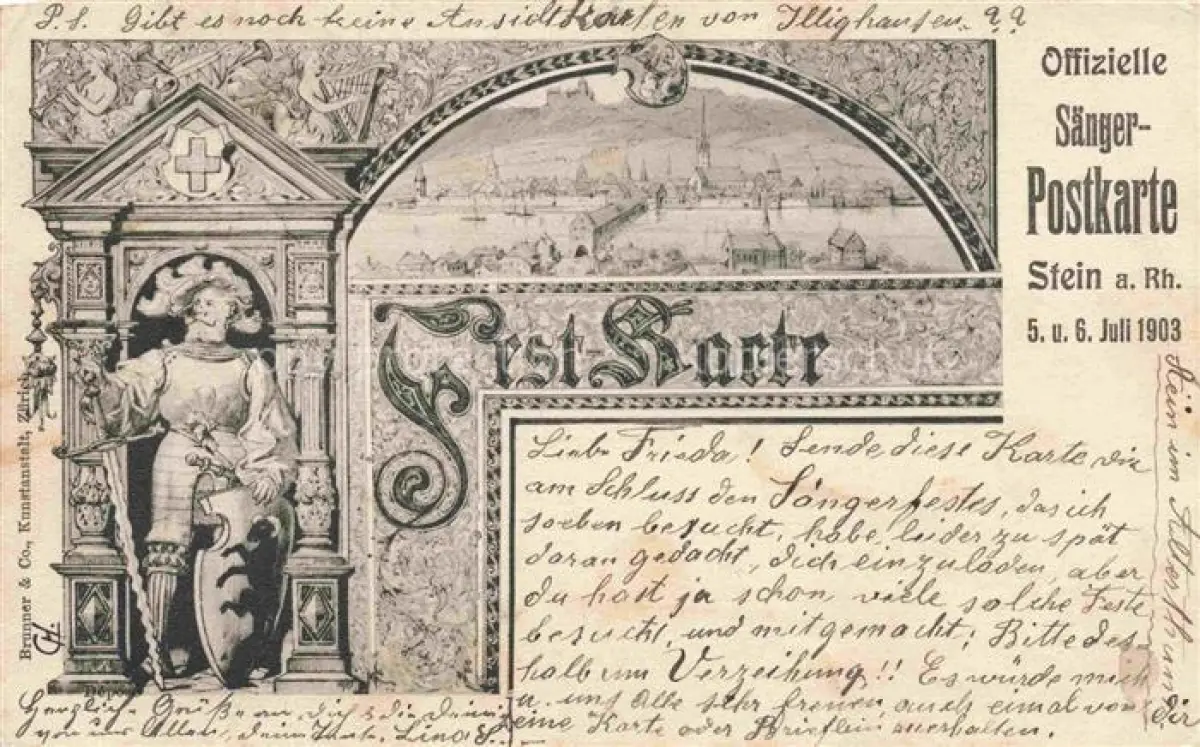 P.S. Gibt es noch keine Ansichtkarten von Illighausen. ??
Offizielle
Sänger-
Postkarte
Stein a. Rh.
5. u. 6. Juli 1903
Fest-Karte
Liebe Frieda! Sende diese Karte dir
am Schluss den Sängerfestes, das ich
soeben besucht, habe leider zu spät
daran gedacht, dich einzuladen, aber
du hast ja schon viele solche Feste
besucht, und mitgemacht; Bitte des-
halb um Verzeihung!! Es würde mich
u. uns Alle sehr freuen, auch einmal von
eine Karte oder Brieflein zu erhalten.
dir
Herzliche Grüße an dich & die Deinen
von uns Allen, deine Tante. Lina S.
Brunner & Co., Kunstanstalt, Zürich
CH.
Dépos